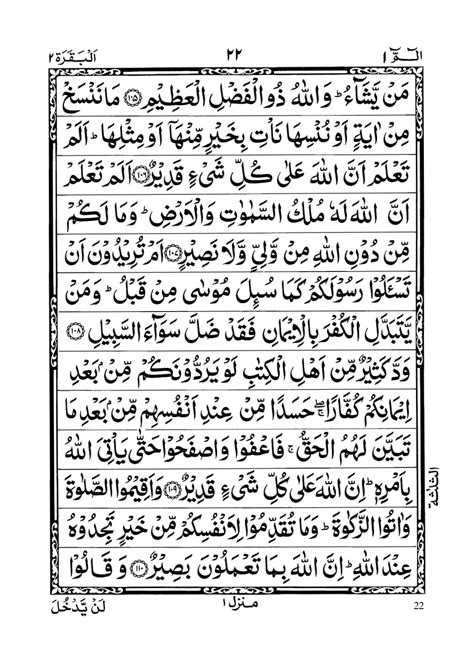 الٓمّٓ ١ ٢٢ اَلْبَقَرَة ٢
مَنْ يَّشَآءُ ؕ وَاللّٰهُ ذُو الْفَضْلِ الْعَظِيْمِ ﴿۱۰۵﴾ مَا نَنْسَخْ
مِنْ اٰيَةٍ اَوْ نُنْسِهَا نَاْتِ بِخَيْرٍ مِّنْهَاۤ اَوْ مِثْلِهَا ؕ اَلَمْ
تَعْلَمْ اَنَّ اللّٰهَ عَلٰى كُلِّ شَيْءٍ قَدِيْرٌ ﴿۱۰۶﴾ اَلَمْ تَعْلَمْ
اَنَّ اللّٰهَ لَهٗ مُلْكُ السَّمٰوٰتِ وَالْاَرْضِ ؕ وَمَا لَكُمْ
مِّنْ دُوْنِ اللّٰهِ مِنْ وَّلِيٍّ وَّلَا نَصِيْرٍ ﴿۱۰۷﴾ اَمْ تُرِيْدُوْنَ اَنْ
تَسْـَٔلُوْا رَسُوْلَكُمْ كَمَا سُىِٕلَ مُوْسٰى مِنْ قَبْلُ ؕ وَمَنْ
يَّتَبَدَّلِ الْكُفْرَ بِالْاِيْمَانِ فَقَدْ ضَلَّ سَوَآءَ السَّبِيْلِ ﴿۱۰۸﴾
وَدَّ كَثِيْرٌ مِّنْ اَهْلِ الْكِتٰبِ لَوْ يَرُدُّوْنَكُمْ مِّنْۢ بَعْدِ
اِيْمَانِكُمْ كُفَّارًا ۚۖ حَسَدًا مِّنْ عِنْدِ اَنْفُسِهِمْ مِّنْۢ بَعْدِ مَا
تَبَيَّنَ لَهُمُ الْحَقُّ ۚ فَاعْفُوْا وَاصْفَحُوْا حَتّٰى يَاْتِيَ اللّٰهُ
بِاَمْرِهٖ ؕ اِنَّ اللّٰهَ عَلٰى كُلِّ شَيْءٍ قَدِيْرٌ ﴿۱۰۹﴾ وَاَقِيْمُوا الصَّلٰوةَ
وَاٰتُوا الزَّكٰوةَ ؕ وَمَا تُقَدِّمُوْا لِاَنْفُسِكُمْ مِّنْ خَيْرٍ تَجِدُوْهُ
عِنْدَ اللّٰهِ ؕ اِنَّ اللّٰهَ بِمَا تَعْمَلُوْنَ بَصِيْرٌ ﴿۱۱۰﴾ وَقَالُوْا
الثلٰثة
منزل ١
لَنْ يَّدْخُلَ
22